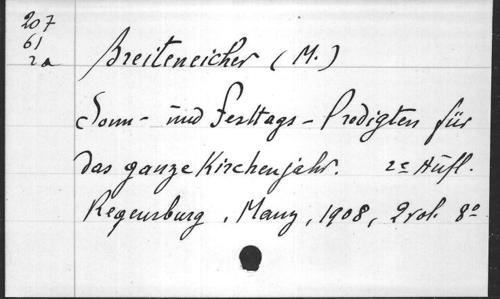 207
61
2a
Breiteneicher (M.)
Sonn- und Festtags-Predigten für
das ganze Kirchenjahr. 2e Aufl.
Regensburg, Manz, 1908, 2 vol. 8o